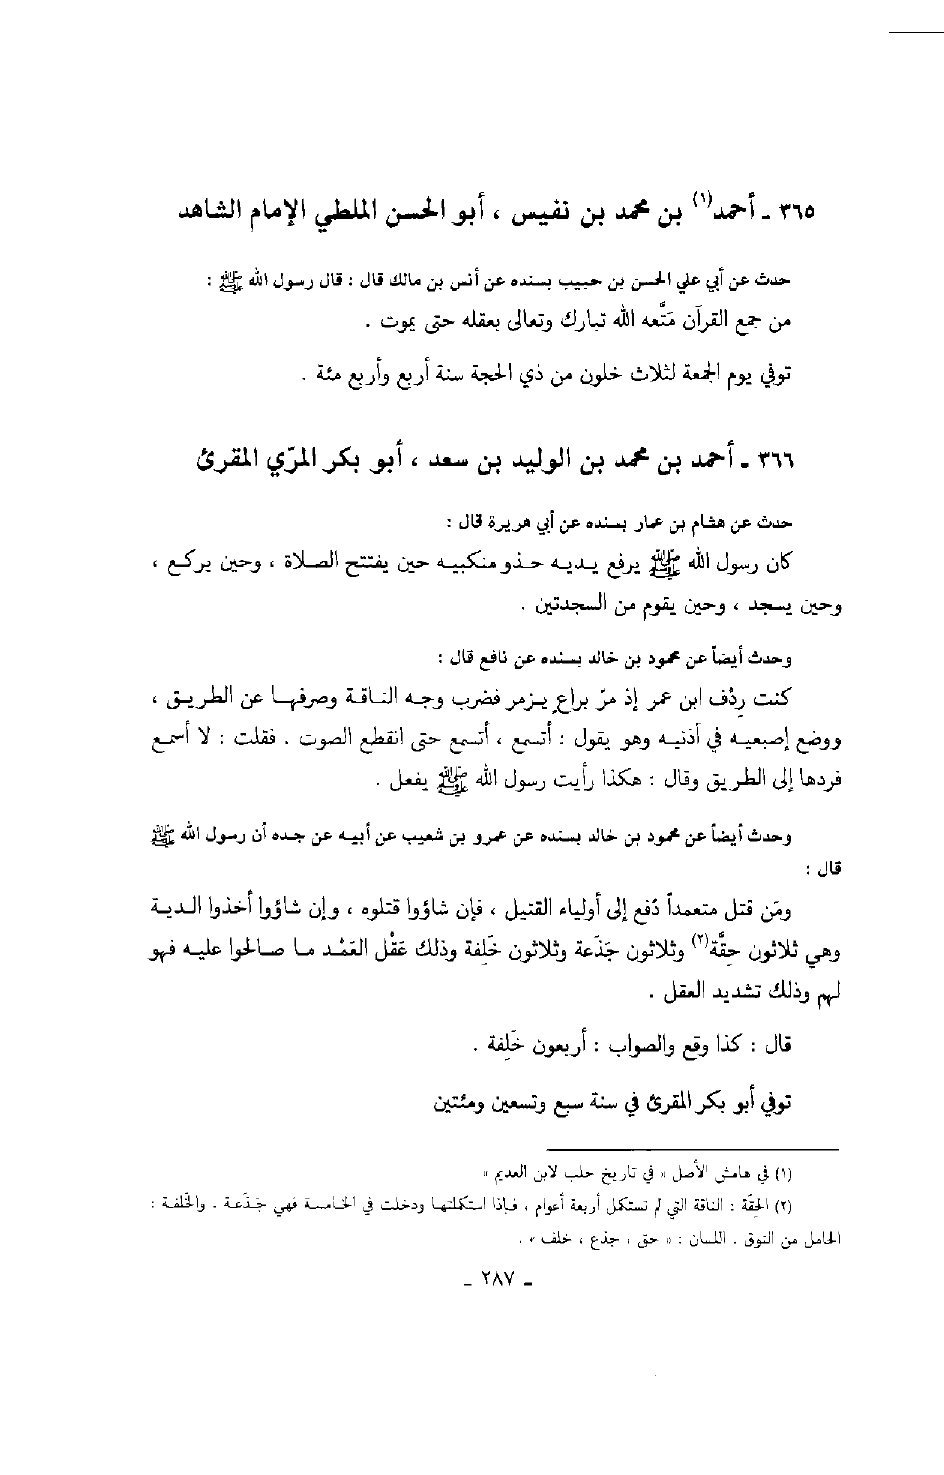 ٣٦٥ ـ أحمد(١) بن محمد بن نفيس ، أبو الحسن الملطي الإمام الشاهد
حدث عن أبي علي الحسن بن حبيب بسنده عن أنس بن مالك قال : قال رسول الله ﷺ :
من جمع القرآن مَتَّعه الله تبارك وتعالى بعقله حتى يموت .
توفي يوم الجمعة لثلاث خلون من ذي الحجة سنة أربع وأربع مئة .
٣٦٦ ـ أحمد بن محمد بن الوليد بن سعد ، أبو بكر المرّي المقرئ
حدث عن هشام بن عمار بسنده عن أبي هريرة قال :
كان رسول الله ﷺ يرفع يديه حذو منكبيه حين يفتتح الصلاة ، وحين يركع ،
وحين يسجد ، وحين يقوم من السجدتين .
وحدث أيضاً عن محمود بن خالد بسنده عن نافع قال :
كنت رِدْف ابن عمر إذ مرّ براعٍ يزمر فضرب وجه الناقة وصرفها عن الطريق ،
ووضع إصبعيه في أذنيه وهو يقول : أتسمع ، أتسمع حتى انقطع الصوت . فقلت : لا أسمع
فردها إلى الطريق وقال : هكذا رأيت رسول الله ﷺ يفعل .
وحدث أيضاً عن محمود بن خالد بسنده عن عمرو بن شعيب عن أبيه عن جده أن رسول الله ﷺ
قال :
ومَن قتل متعمداً دُفع إلى أولياء القتيل ، فإن شاؤوا قتلوه ، وإن شاؤوا أخذوا الدية
وهي ثلاثون حِقَّة(٢) وثلاثون جَذَعة وثلاثون خَلِفة وذلك عَقْل العَمْد ما صالحوا عليه فهو
لهم وذلك تشديد العقل .
قال : كذا وقع والصواب : أربعون خَلِفة .
توفي أبو بكر المقرئ في سنة سبع وتسعين ومئتين
(١) في هامش الأصل « في تاريخ حلب لابن العديم »
(٢) الحِقَّة : الناقة التي لم تستكمل أربعة أعوام ، فإذا استكملتها ودخلت في الخامسة فهي جَذَعة . والخَلفة :
الحامل من النوق . اللسان : « حق ، جذع ، خلف » .
ـ ٢٨٧ ـ